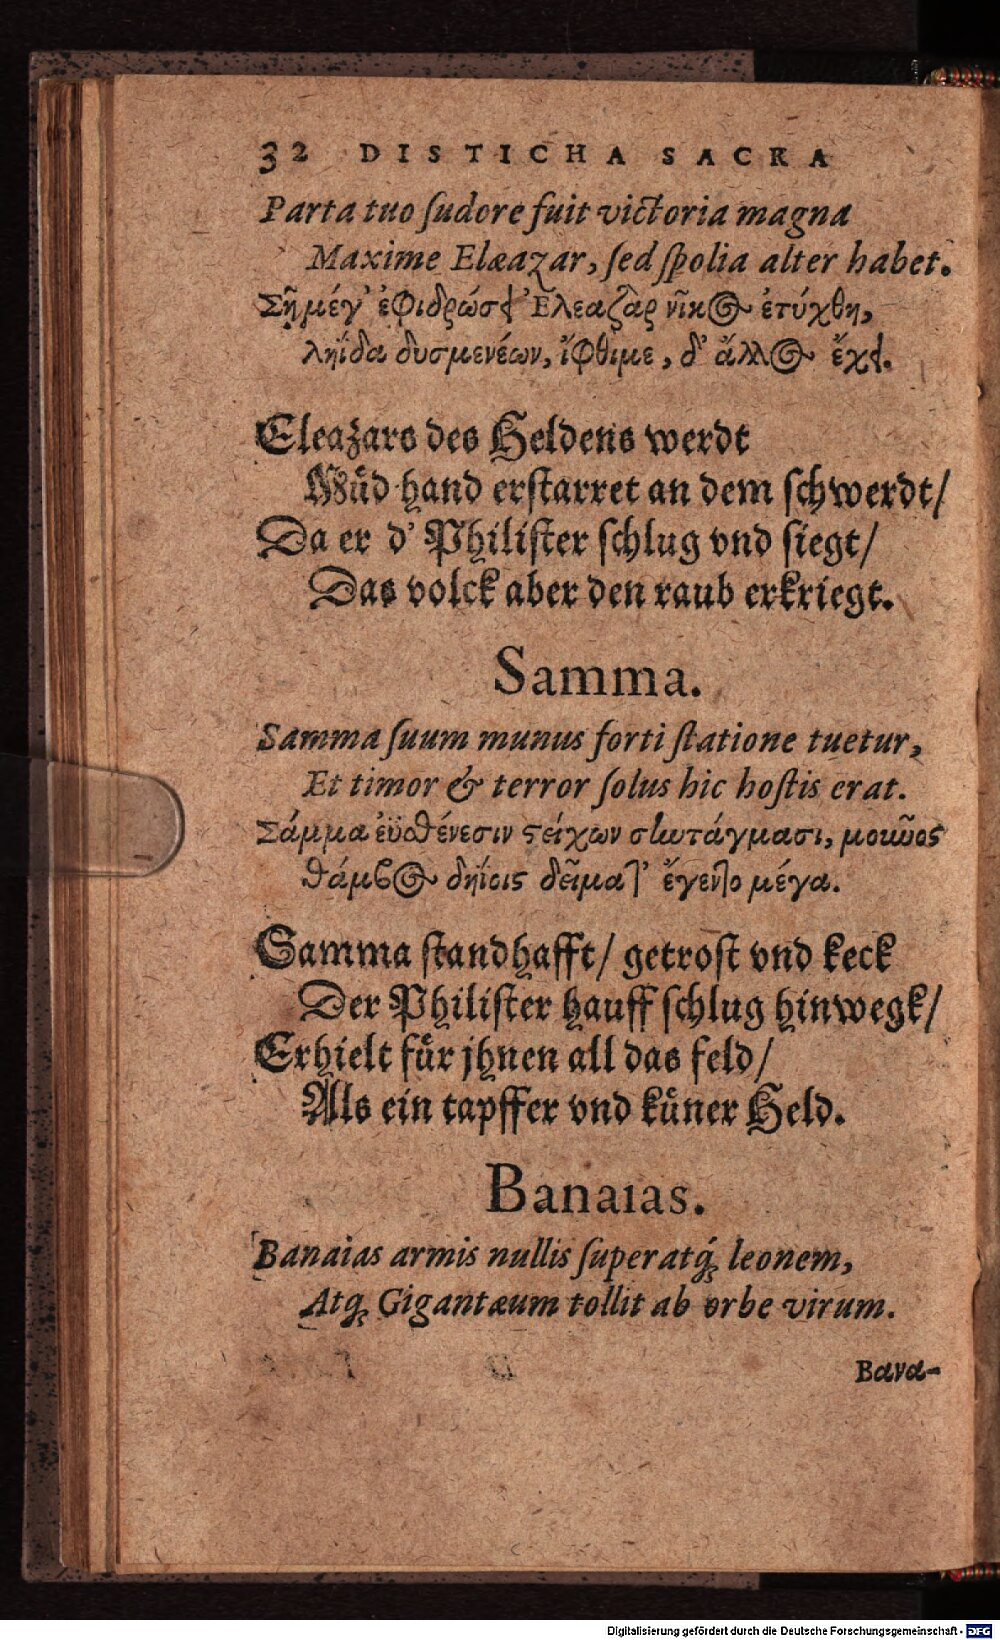 32 DISTICHA SACRA
Parta tuo ſudore fuit victoria magna
Maxime Elæazar, ſed ſpolia alter habet.
Σῆ μέγ' ἐφιδρώσει Ἐλεαζὰρ νῖκος ἐτύχθη,
ληΐδα δυσμενέων, ἴφθιμε, δ' ἄλλος ἔχει.
Eleazars des Heldens werdt
Müd hand erſtarret an dem ſchwerdt/
Da er d' Philiſter ſchlug vnd ſiegt/
Das volck aber den raub erkriegt.
Samma.
Samma ſuum munus forti ſtatione tuetur,
Et timor & terror ſolus hic hoſtis erat.
Σάμμα ἐϋσθένεσιν στείχων συντάγμασι, μοῦνος
θάμβος δηΐοις δεῖμά τ' ἔγεντο μέγα.
Samma ſtandhafft/ getroſt vnd keck
Der Philiſter hauff ſchlug hinwegk/
Erhielt für jhnen all das feld/
Als ein tapffer vnd küner Held.
Banaias.
Banaias armis nullis ſuperatq́ue leonem,
Atq́ue Gigantæum tollit ab orbe virum.
Βανα-
Digitalisierung gefördert durch die Deutsche Forschungsgemeinschaft - DFG